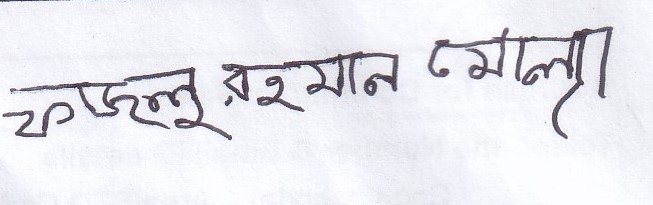 ফজলু রহমান মোল্যা